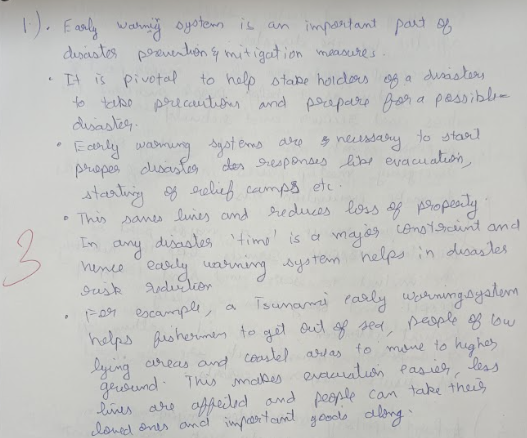 1). Early warning system is an important part of
disaster prevention & mitigation measures.
• It is pivotal to help stake holders of a disasters
to take precautions and prepare for a possible
disaster.
• Early warning systems are necessary to start
proper disaster responses like evacuation,
starting of relief camps etc.
• This saves lives and reduces loss of property.
In any disaster 'time' is a major constraint and
hence early warning system helps in disaster
risk reduction
3
• For example, a Tsunami early warning system
helps fishermen to get out of sea, people of low
lying areas and coastel areas to move to higher
geround. This makes evacuation easier, less
lives are affected and people can take their
loved ones and important goods along.